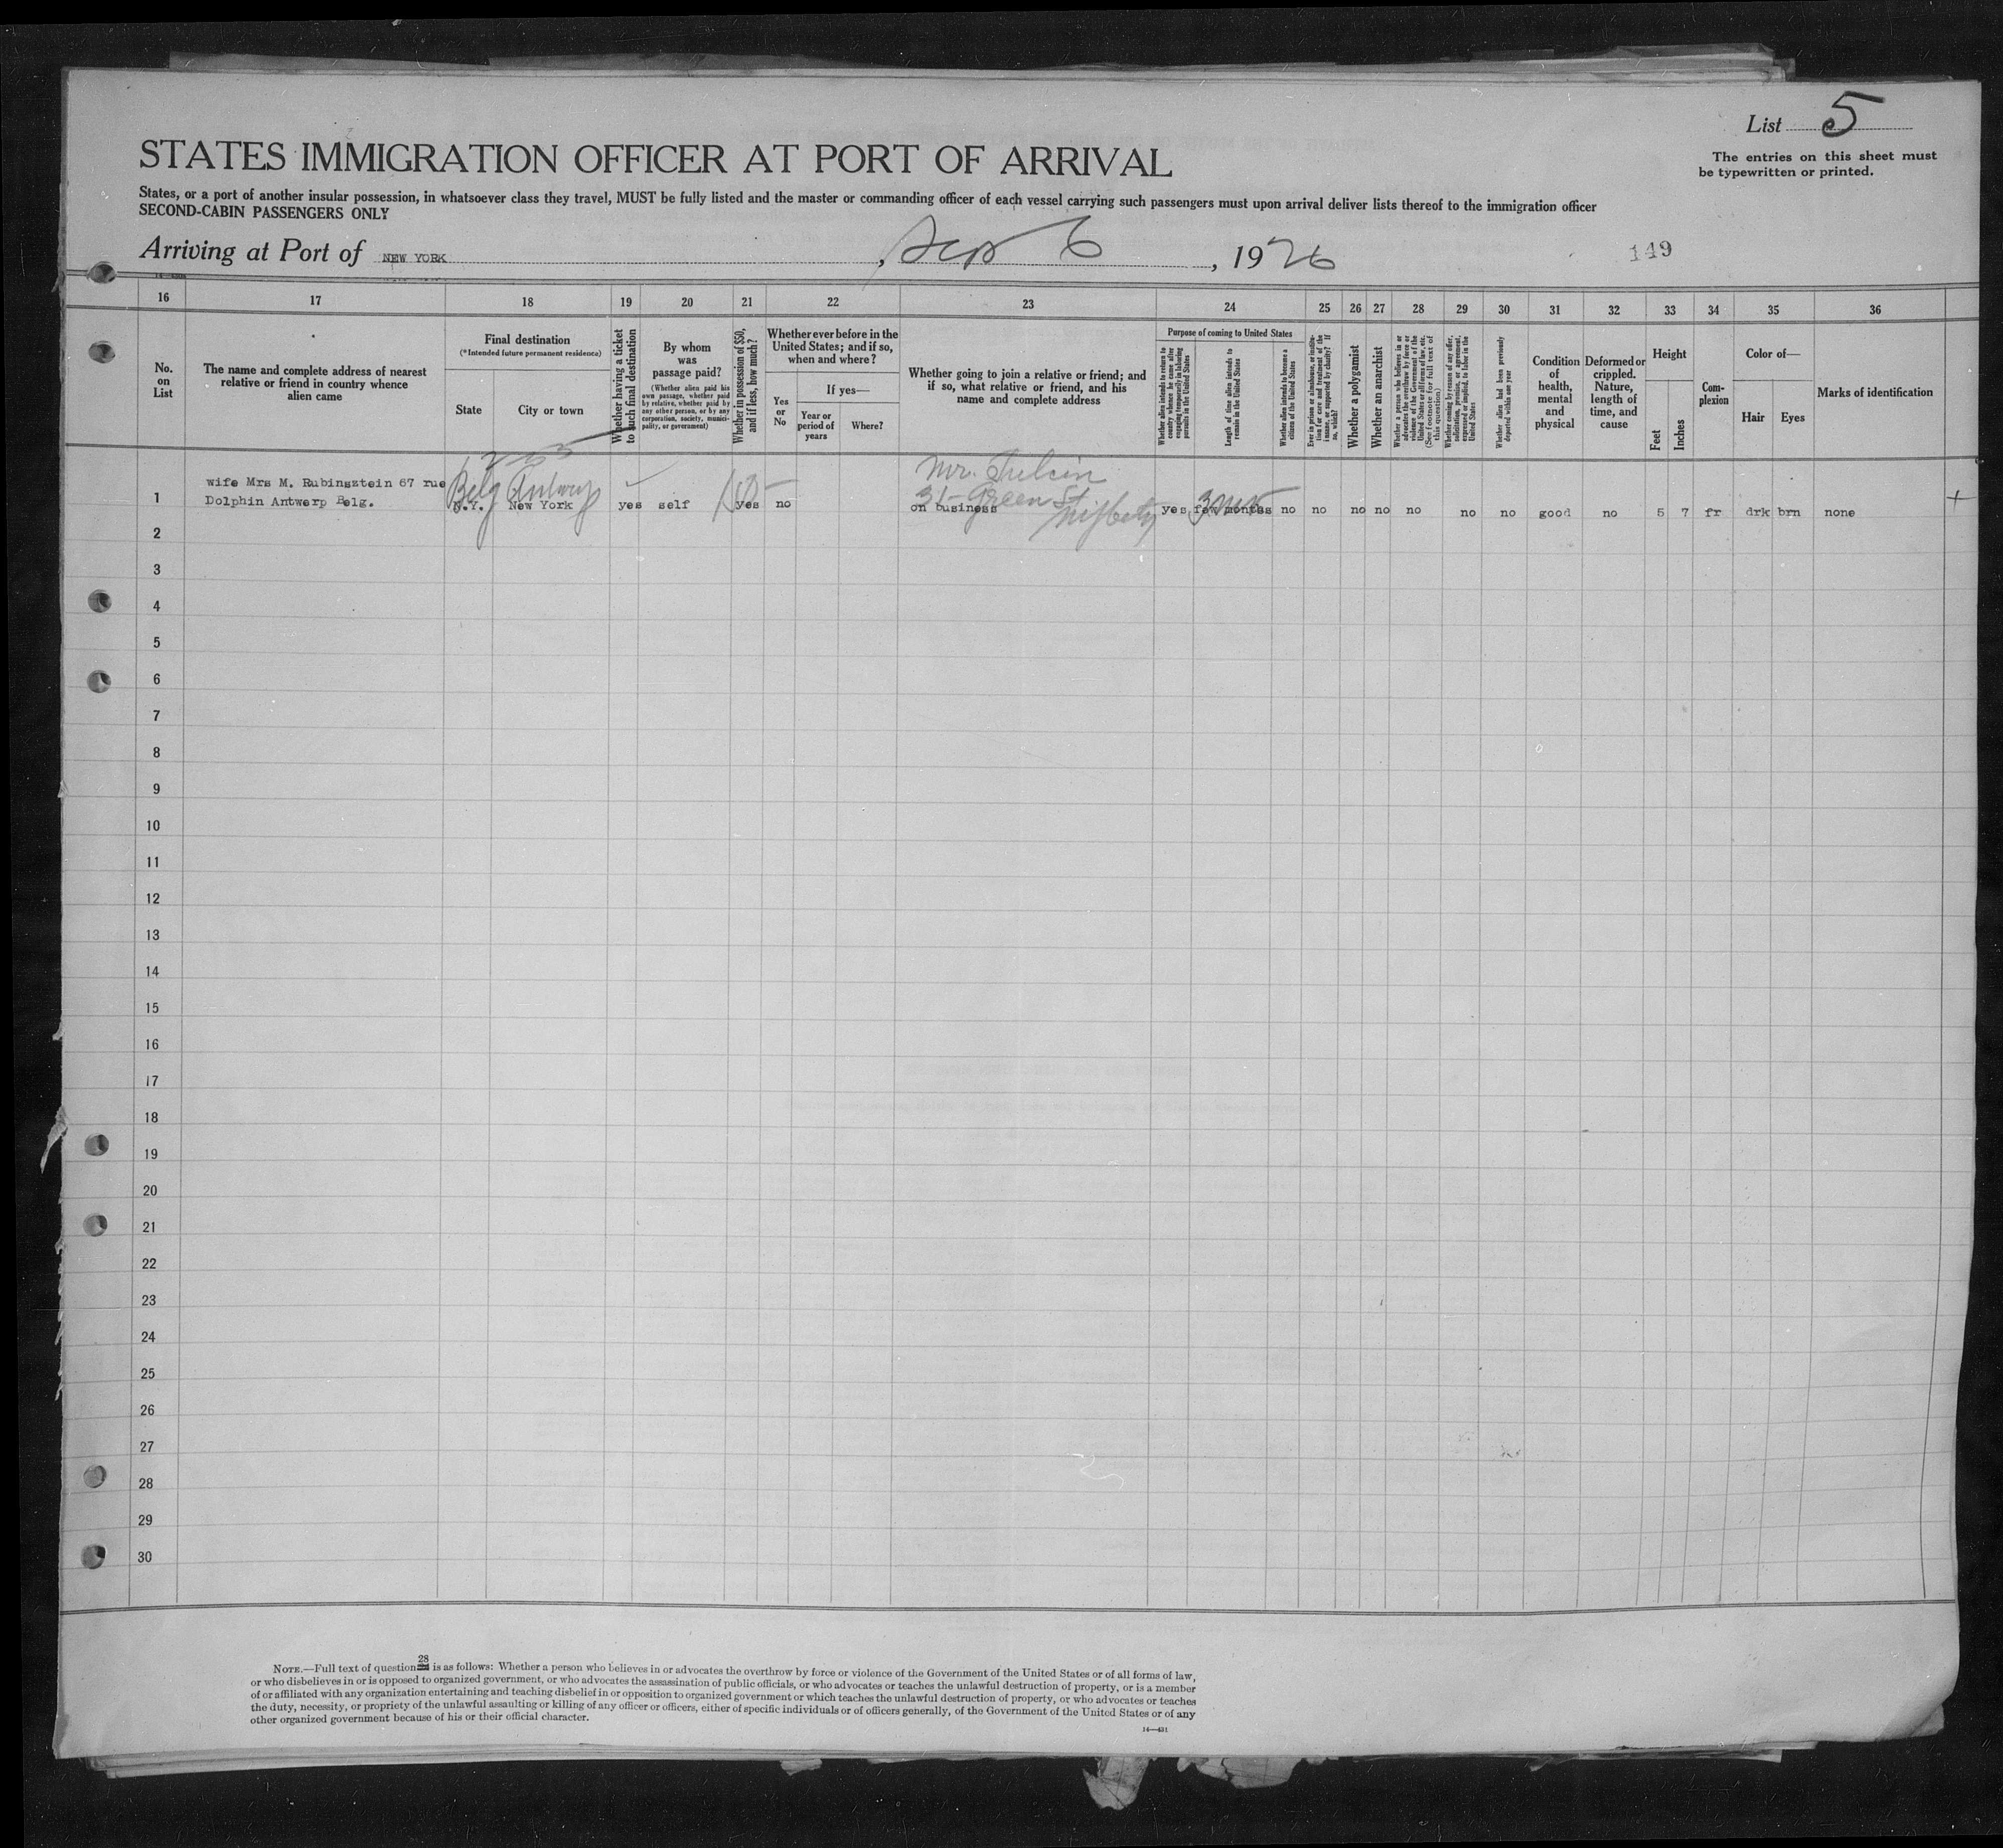 List 5
The entries on this sheet must
be typewritten or printed.
STATES IMMIGRATION OFFICER AT PORT OF ARRIVAL
States, or a port of another insular possession, in whatsoever class they travel, MUST be fully listed and the master or commanding officer of each vessel carrying such passengers must upon arrival deliver lists thereof to the immigration officer
SECOND-CABIN PASSENGERS ONLY
Arriving at Port of NEW YORK, Sep 6, 1926
149
16 17 18 19 20 21 22 23 24 25 26 27 28 29 30 31 32 33 34 35 36
No.
on
List
The name and complete address of nearest
relative or friend in country whence
alien came
Final destination
(*Intended future permanent residence)
State
City or town
Whether having a ticket
to such final destination
By whom
was
passage paid?
(Whether alien paid his
own passage, whether paid
by relative, whether paid by
any other person, or by any
corporation, society, munici-
pality, or government)
Whether in possession of $50,
and if less, how much?
Whether ever before in the
United States; and if so,
when and where?
Yes
or
No
If yes—
Year or
period of
years
Where?
Whether going to join a relative or friend; and
if so, what relative or friend, and his
name and complete address
Purpose of coming to United States
Whether alien intends to return to
country whence he came after
engaging temporarily in laboring
pursuits in the United States
Length of time alien intends to
remain in the United States
Whether alien intends to become a
citizen of the United States
Ever in prison or almshouse, or institu-
tion for care and treatment of the
insane, or supported by charity? If
so, which?
Whether a polygamist
Whether an anarchist
Whether a person who believes in or
advocates the overthrow by force or
violence of the Government of the
United States or all forms of law, etc.
(See footnote for full text of
this question)
Whether coming by reason of any offer,
solicitation, promise, or agreement,
expressed or implied, to labor in the
United States
Whether alien had been previously
deported within one year
Condition
of
health,
mental
and
physical
Deformed or
crippled.
Nature,
length of
time, and
cause
Height
Feet
Inches
Com-
plexion
Color of—
Hair
Eyes
Marks of identification
Mr.
Belg Antwerp
31 Green St
3 mos
wife Mrs M. Rubinsztein 67 rue
Dolphin Antwerp Belg.
1 N.Y. New York yes self yes no on business yes few months no no no no no no no good no 5 7 fr drk brn none +
2
3
4
5
6
7
8
9
10
11
12
13
14
15
16
17
18
19
20
21
22
23
24
25
26
27
28
29
30
28
NOTE.—Full text of question is as follows: Whether a person who believes in or advocates the overthrow by force or violence of the Government of the United States or of all forms of law,
or who disbelieves in or is opposed to organized government, or who advocates the assassination of public officials, or who advocates or teaches the unlawful destruction of property, or is a member
of or affiliated with any organization entertaining and teaching disbelief in or opposition to organized government or which teaches the unlawful destruction of property, or who advocates or teaches
the duty, necessity, or propriety of the unlawful assaulting or killing of any officer or officers, either of specific individuals or of officers generally, of the Government of the United States or of any
other organized government because of his or their official character.
14—431